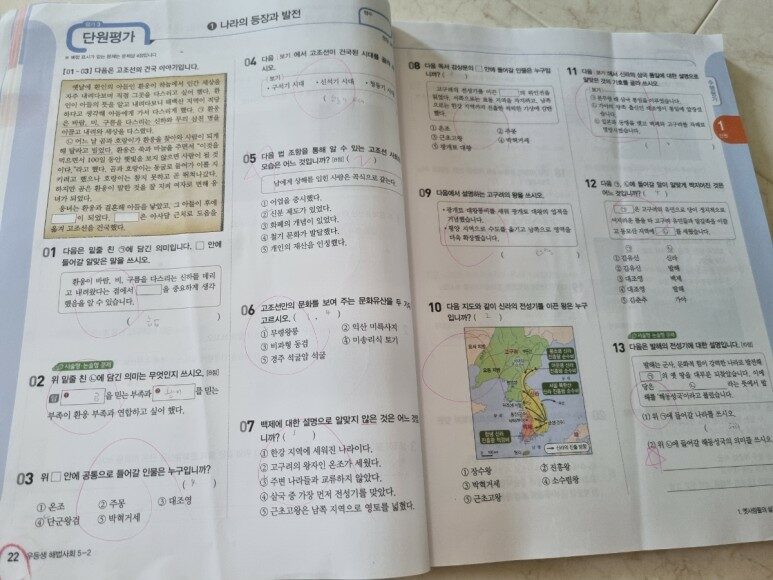 단원평가
1 나라의 등장과 발전
[01~03] 다음은 고조선의 건국 이야기입니다.
옛날에 환인의 아들인 환웅이 하늘에서 인간 세상을
자주 내려다보며
환인이 아들의 뜻을 알고 내려다보니 태백산 지역이 적당
하다고 생각해 아들에게 가서 다스리게 했다. ㉠ 환웅
은 바람, 비, 구름을 다스리는 신하와 무리 삼천 명을
이끌고 내려와 세상을 다스렸다.
㉡ 어느 날 곰과 호랑이가 환웅을 찾아와 사람이 되게
해 달라고 빌었다. 환웅은 쑥과 마늘을 주면서 "이것을
먹으면서 100일 동안 햇빛을 보지 않으면 사람이 될 것
이다."라고 했다. 곰과 호랑이는 동굴로 들어가 이를 지
키려고 했으나 호랑이는 참지 못하고 뛰쳐나갔다.
하지만 곰은 환웅이 말한 것을 잘 지켜 여자로 변해 웅
녀가 되었다.
웅녀는 환웅과 결혼해 아들을 낳았고, 그 아들이 후에
이 되었다. 은 아사달 근처로 도읍을
옮겨 고조선을 건국했다.
01 다음은 밑줄 친 ㉠에 담긴 의미입니다. □ 안에
들어갈 알맞은 말을 쓰시오.
환웅이 바람, 비, 구름을 다스리는 신하를 데리
고 내려왔다는 점에서 □을 중요하게 생각
했음을 알 수 있습니다.
서술형·논술형 문제
02 위 밑줄 친 ㉡에 담긴 의미는 무엇인지 쓰시오.
답 을 믿는 부족과 를 믿는
부족이 환웅 부족과 연합하고 싶어 했다.
03 위 □ 안에 공통으로 들어갈 인물은 누구입니까?
① 온조 ② 주몽 ③ 대조영
④ 단군왕검 ⑤ 박혁거세
22 우등생 해법사회 5-2
04 다음 보기에서 고조선이 건국된 시대를 골라
시오.
보기
• 구석기 시대 • 신석기 시대 • 청동기
05 다음 법 조항을 통해 알 수 있는 고조선
모습은 어느 것입니까?
남에게 상해를 입힌 사람은 곡식으로 갚는다.
① 어업을 중시했다.
② 신분 제도가 있었다.
③ 화폐의 개념이 있었다.
④ 철기 문화가 발달했다.
⑤ 개인의 재산을 인정했다.
06 고조선만의 문화를 보여 주는 문화유산을 두 가지
고르시오.
① 무령왕릉 ② 익산 미륵사지
③ 비파형 동검 ④ 미송리식 토기
⑤ 경주 석굴암 석굴
07 백제에 대한 설명으로 알맞지 않은 것은 어느 것입
니까?
① 한강 지역에 세워진 나라이다.
② 고구려의 왕자인 온조가 세웠다.
③ 주변 나라들과 교류하지 않았다.
④ 삼국 중 가장 먼저 전성기를 맞았다.
⑤ 근초고왕은 남쪽 지역으로 영토를 넓혔다.
08 다음 독서 감상문의 □ 안에 들어갈 인물은 누구입
니까?
① 온조 ② 주몽
③ 근초고왕 ④ 박혁거세
⑤ 광개토 대왕
09 다음에서 설명하는 고구려의 왕을 쓰시오.
• 광개토 대왕릉비를 세워 광개토 대왕의 업적을
기념했습니다.
• 평양 지역으로 수도를 옮기고 남쪽으로 영역을
더욱 확장했습니다.
10 다음 지도와 같이 신라의 전성기를 이끈 왕은 누구
입니까?
고구려
백제
신라
① 장수왕 ② 진흥왕
③ 박혁거세 ④ 소수림왕
⑤ 근초고왕
11 다음 보기에서 신라의 삼국 통일에 대한 설명으로
알맞은 것의 기호를 골라 쓰시오.
보기
12 다음 ㉠, ㉡에 들어갈 말이 알맞게 짝지어진 것은
어느 것입니까?
㉠은 고구려의 유민으로 당이 정치적으로
어지러운 틈을 타 고구려 유민들과 말갈족을 이끌
고 동모산 지역에 ㉡를 세웠습니다.
㉠ ㉡
① 김유신 신라
② 김유신 발해
③ 대조영 백제
④ 대조영 발해
⑤ 김춘추 가야
서술형·논술형 문제
13 다음은 발해의 전성기에 대한 설명입니다.
발해는 군사, 문화적 힘이 강력한 나라로 발전해
㉠의 옛 땅을 대부분 되찾았습니다. 이에
당은 ㉡ 라는 뜻에서 발
해를 '해동성국'이라고 불렀습니다.
(1) 위 ㉠에 들어갈 나라를 쓰시오.
(2) 위 ㉡에 들어갈 해동성국의 의미를 쓰시오.